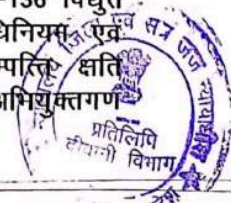 -136 विद्युत
धिनियम एवं
म्पत्ति क्षति
अभियुक्तगण
जिला एवं सत्र जज
न्यायाधीश
प्रतिलिपि
दीवानी विभाग